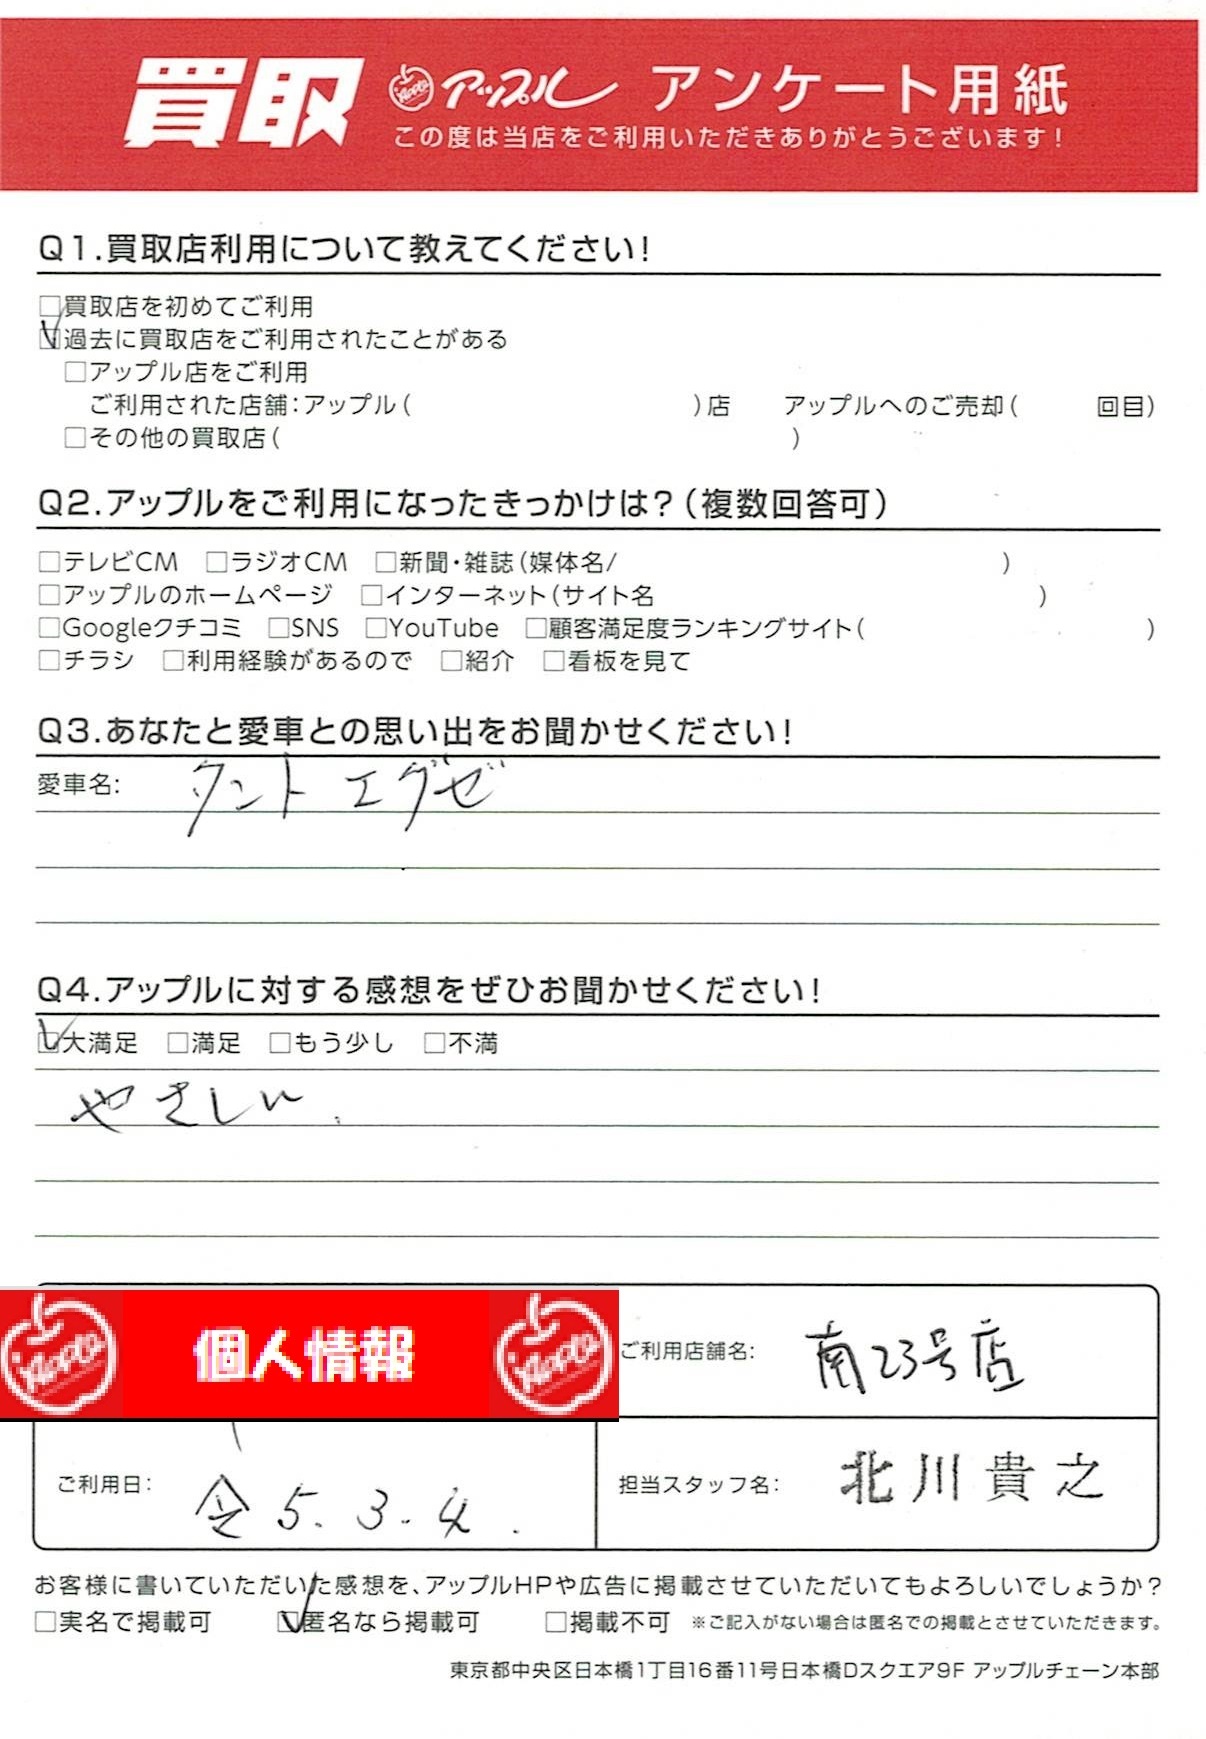 買取 アップル アンケート用紙
この度は当店をご利用いただきありがとうございます!
Q1.買取店利用について教えてください!
□買取店を初めてご利用
☑過去に買取店をご利用されたことがある
□アップル店をご利用
ご利用された店舗:アップル( )店 アップルへのご売却( 回目)
□その他の買取店( )
Q2.アップルをご利用になったきっかけは?(複数回答可)
□テレビCM □ラジオCM □新聞・雑誌(媒体名/ )
□アップルのホームページ □インターネット(サイト名 )
□Googleクチコミ □SNS □YouTube □顧客満足度ランキングサイト( )
□チラシ □利用経験があるので □紹介 □看板を見て
Q3.あなたと愛車との思い出をお聞かせください!
愛車名: タント エグゼ
Q4.アップルに対する感想をぜひお聞かせください!
☑大満足 □満足 □もう少し □不満
やさしい
Apple 個人情報 Apple
ご利用店舗名: 南23号店
ご利用日: 令5.3.4.
担当スタッフ名: 北川貴之
お客様に書いていただいた感想を、アップルHPや広告に掲載させていただいてもよろしいでしょうか?
□実名で掲載可 ☑匿名なら掲載可 □掲載不可 ※ご記入がない場合は匿名での掲載とさせていただきます。
東京都中央区日本橋1丁目16番11号日本橋Dスクエア9F アップルチェーン本部